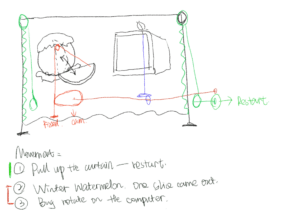 → Restart
Fixed
Glue
Movement =
① Pull up the curtain — restart.
② Winter Watermelon One Slice came out.
③ Boy rotate on the computer.